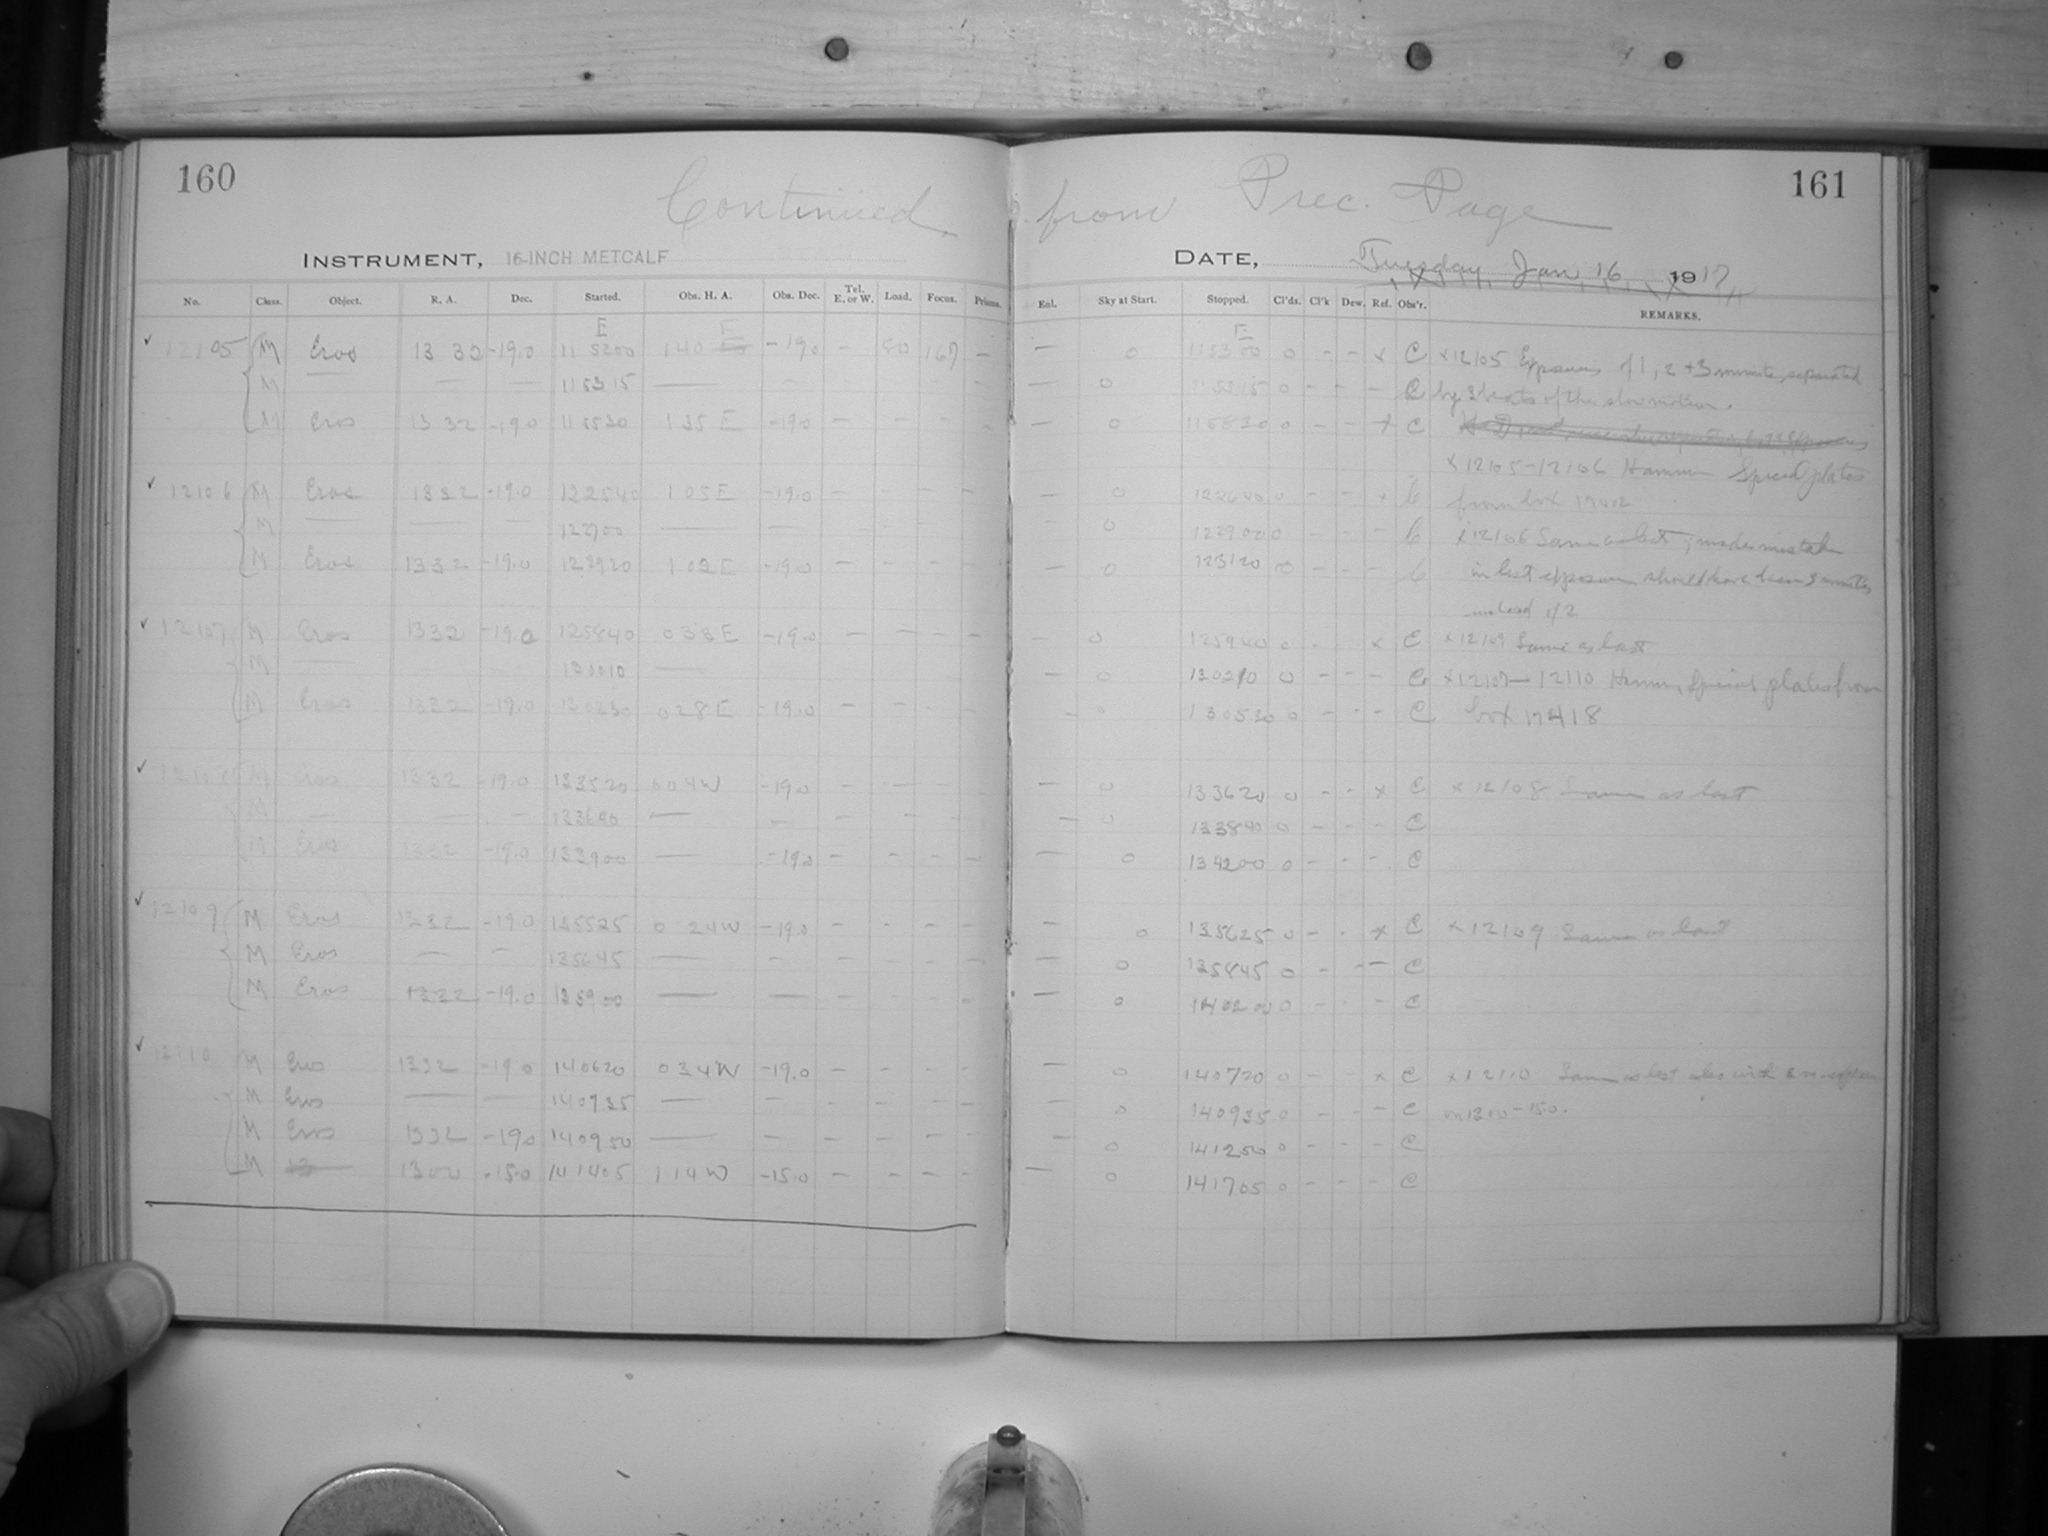 160
161
Continued from Prec. Page
INSTRUMENT, 16-INCH METCALF
DATE, Tuesday Jan 16 1917
No. Class. Object. R. A. Dec. Started. Obs. H. A. Obs. Dec. Tel. E. or W. Load. Focus. Prisms. Enl. Sky at Start. Stopped. Cl'ds. Cl'k Dew. Ref. Obs'r. REMARKS.
E E E
✓ 12105 M Eros 13 32 -19.0 11 52 00 1 40 -19.0 - 80 167 - - 0 11 53 00 0 - - x C x12105 Exposures of 1, 2 + 3 minutes, separated
M — — 11 53 15 — - - 0 11 55 15 0 - - - C by 3 beats of the slow motion.
M Eros 13 32 -19.0 11 55 30 1 35 E -19.0 - - - - - 0 11 58 30 0 - - x C
x12105-12106 Hammer Special plates
✓ 12106 M Eros 13 32 -19.0 12 25 40 1 05 E -19.0 - - - - - 0 12 26 40 0 - - x C from box 17402
M — — — 12 27 00 — — 0 12 29 00 0 - - - C x12106 Same as last; made mistake
M Eros 13 32 -19.0 12 29 20 1 02 E -19.0 - - - - - 0 12 31 20 0 - - - C in last exposure should have been 3 minutes
instead of 2
✓ 12107 M Eros 13 32 -19.0 12 58 40 0 33 E -19.0 - - - - - 0 12 59 40 0 - - x C x12107 Same as last
M — 13 00 10 — - 0 13 02 10 0 - - - C x12107-12110 Hammer Special plates from
M Eros 13 32 -19.0 13 02 30 0 28 E -19.0 - - - - - 0 13 05 30 0 - - - C box 17418
✓ 12108 M Eros 13 32 -19.0 13 35 20 0 04 W -19.0 - - - - - 0 13 36 20 0 - - x C x12108 Same as last
M — — - 13 36 40 — - - - - - 0 13 38 40 0 - - - C
M Eros 13 32 -19.0 13 39 00 — -19.0 - - - - - 0 13 42 00 0 - - - C
✓ 12109 M Eros 13 32 -19.0 13 55 25 0 24 W -19.0 - - - - - 0 13 56 25 0 - - x C x12109 Same as last
M Eros — — 13 56 45 — - - - - - - 0 13 58 45 0 - - - C
M Eros 13 32 -19.0 13 59 00 — — - - - - - 0 14 02 00 0 - - - C
✓ 12110 M Eros 13 32 -19.0 14 06 20 0 34 W -19.0 - - - - - 0 14 07 20 0 - - x C x12110 Same as last also with
M Eros — — 14 07 35 — - - - - - - 0 14 09 35 0 - - - C on 13 00 -15.0.
M Eros 13 32 -19.0 14 09 50 — - - - - - - 0 14 12 50 0 - - - C
M 13 00 -15.0 14 14 05 1 14 W -15.0 - - - - - 0 14 17 05 0 - - - C